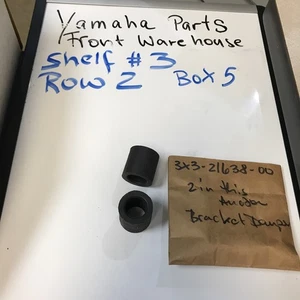 Yamaha Parts
Front Warehouse
Shelf #3
Row 2 Box 5
3x3-21638-00
2 in this
Bracket Damper